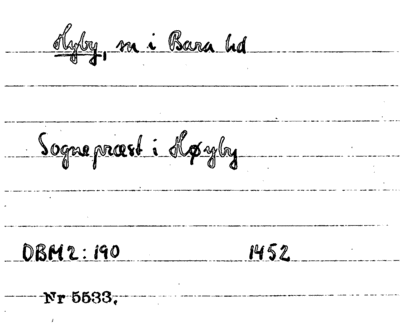 Hyby, sn i Bara hd
Sognepræst i Høyby
DBM 2: 190 1452
Nr 5533.